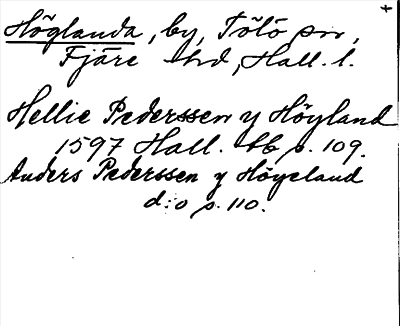 Höglanda, by, Tölö sn,
Fjäre hd, Hall. l.
Hellie Pederssen y Höyland
1597 Hall. bb s. 109.
Anders Pederssen y Höyeland
d:o s. 110.